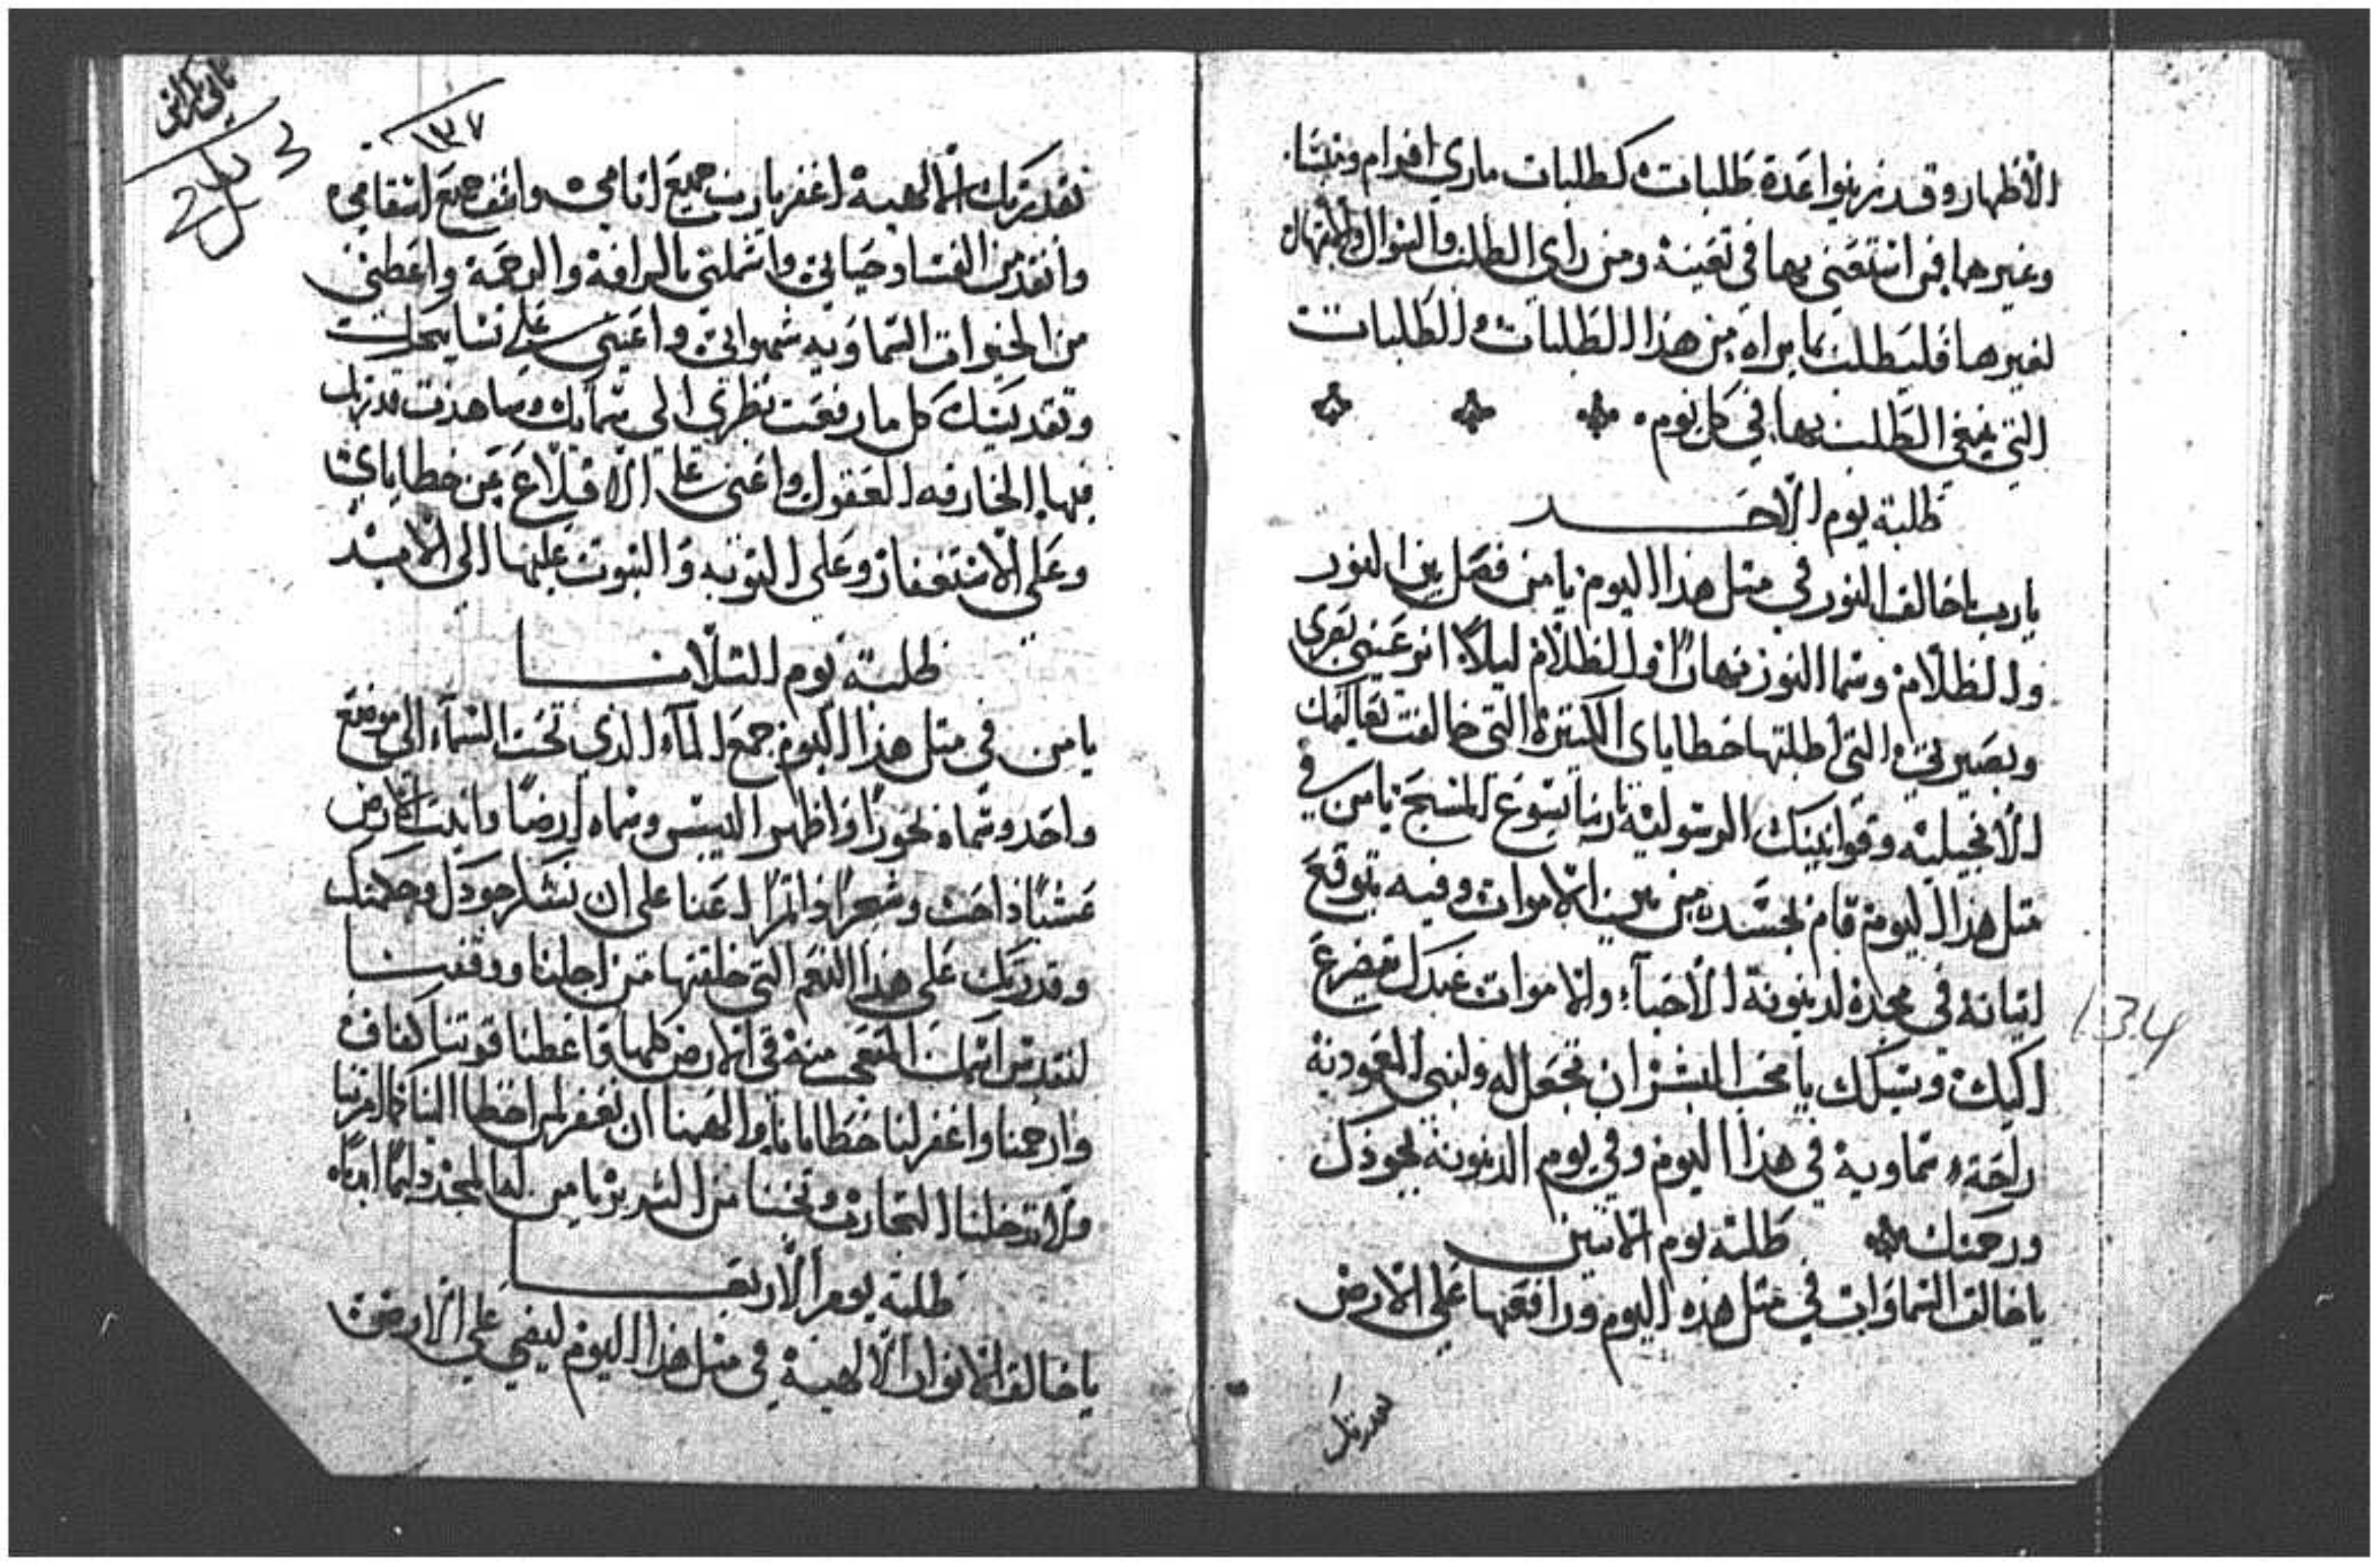 الأظهار وقد رتبوا عدة طلبات كطلبات ماري افرام
وغيرهما فمن استغنى بها في تعينه ومن راى الطلب والسوال والابتهال
لغيرها فليطلب بما يراه من هذا الطلبات والطلبات
التي ينبغي الطلب بها في كل يوم
طلبة يوم الاحد
يارب ياخالق النور في مثل هذا اليوم يامن فصل بين النور
والظلام وسما النور نهارًا والظلام ليلاً انر عيني
وبصيرتي التي اظلمتها خطاياي الكثيرة التي خالفت تعاليمك
الانجيلية وقوانينك الرسولية ياربنا يسوع المسيح يامن في
مثل هذا اليوم قام بجسده من بين الاموات وفيه يتوقع
اتيانه في مجده لدينونة الاحياء والاموات عبدك يتضرع
اليك ويسلك يامحب البشر ان تجعل له ولبني المعمودية
راحة سماوية في هذا اليوم وفي يوم الدينونة بجودك
ورحمتك طلبة يوم الاتنين
ياخالق السماوات في مثل هذه اليوم ورافعها على الارض
بقدرتك
١٣٧
بقدرتك الالهية اغفر يارب جميع اتامي واشف جميع اسقامي
وانقد من الفساد حياتي واشملني بالرافة والرحمة واعطني
من الخيرات السماويه شهواتي واعيني على تسابيحك
وتقديسك كل ما رفعت نظري الى سمايك وشاهدت قدرتك
فيها الخارقه العقول واعني على الاقلاع عن خطاياي
وعلى الاستغفار وعلى التوبه والتبوت عليها الى الابد
طلبة يوم التلاتا
يامن في مثل هذا اليوم جمع الماء الذي تحت السماء الى موضع
واحد وسماه بحورًا واظهر اليبس وسماه ارضًا وانبت الارض
عشبًا وشجرًا واتمرًا اعنا على ان نشكر جودك وحكمتك
وقدرتك على هذا النعم التي خلقتها من اجلنا ووفقنا
لنقدس اسمك في الارض كلها واعطنا قوتنا كفاف
وارحمنا واغفر لنا خطايانا والهمنا ان نغفر لمن اخطا الينا كما امرتنا
ولا تدخلنا التجارب ونجنا من الشرير يامن له المجد دايمًا ابدًا
طلبة يوم الاربعا
ياخالق الانوار الالهية في مثل هذا اليوم ليضي على الارض
134